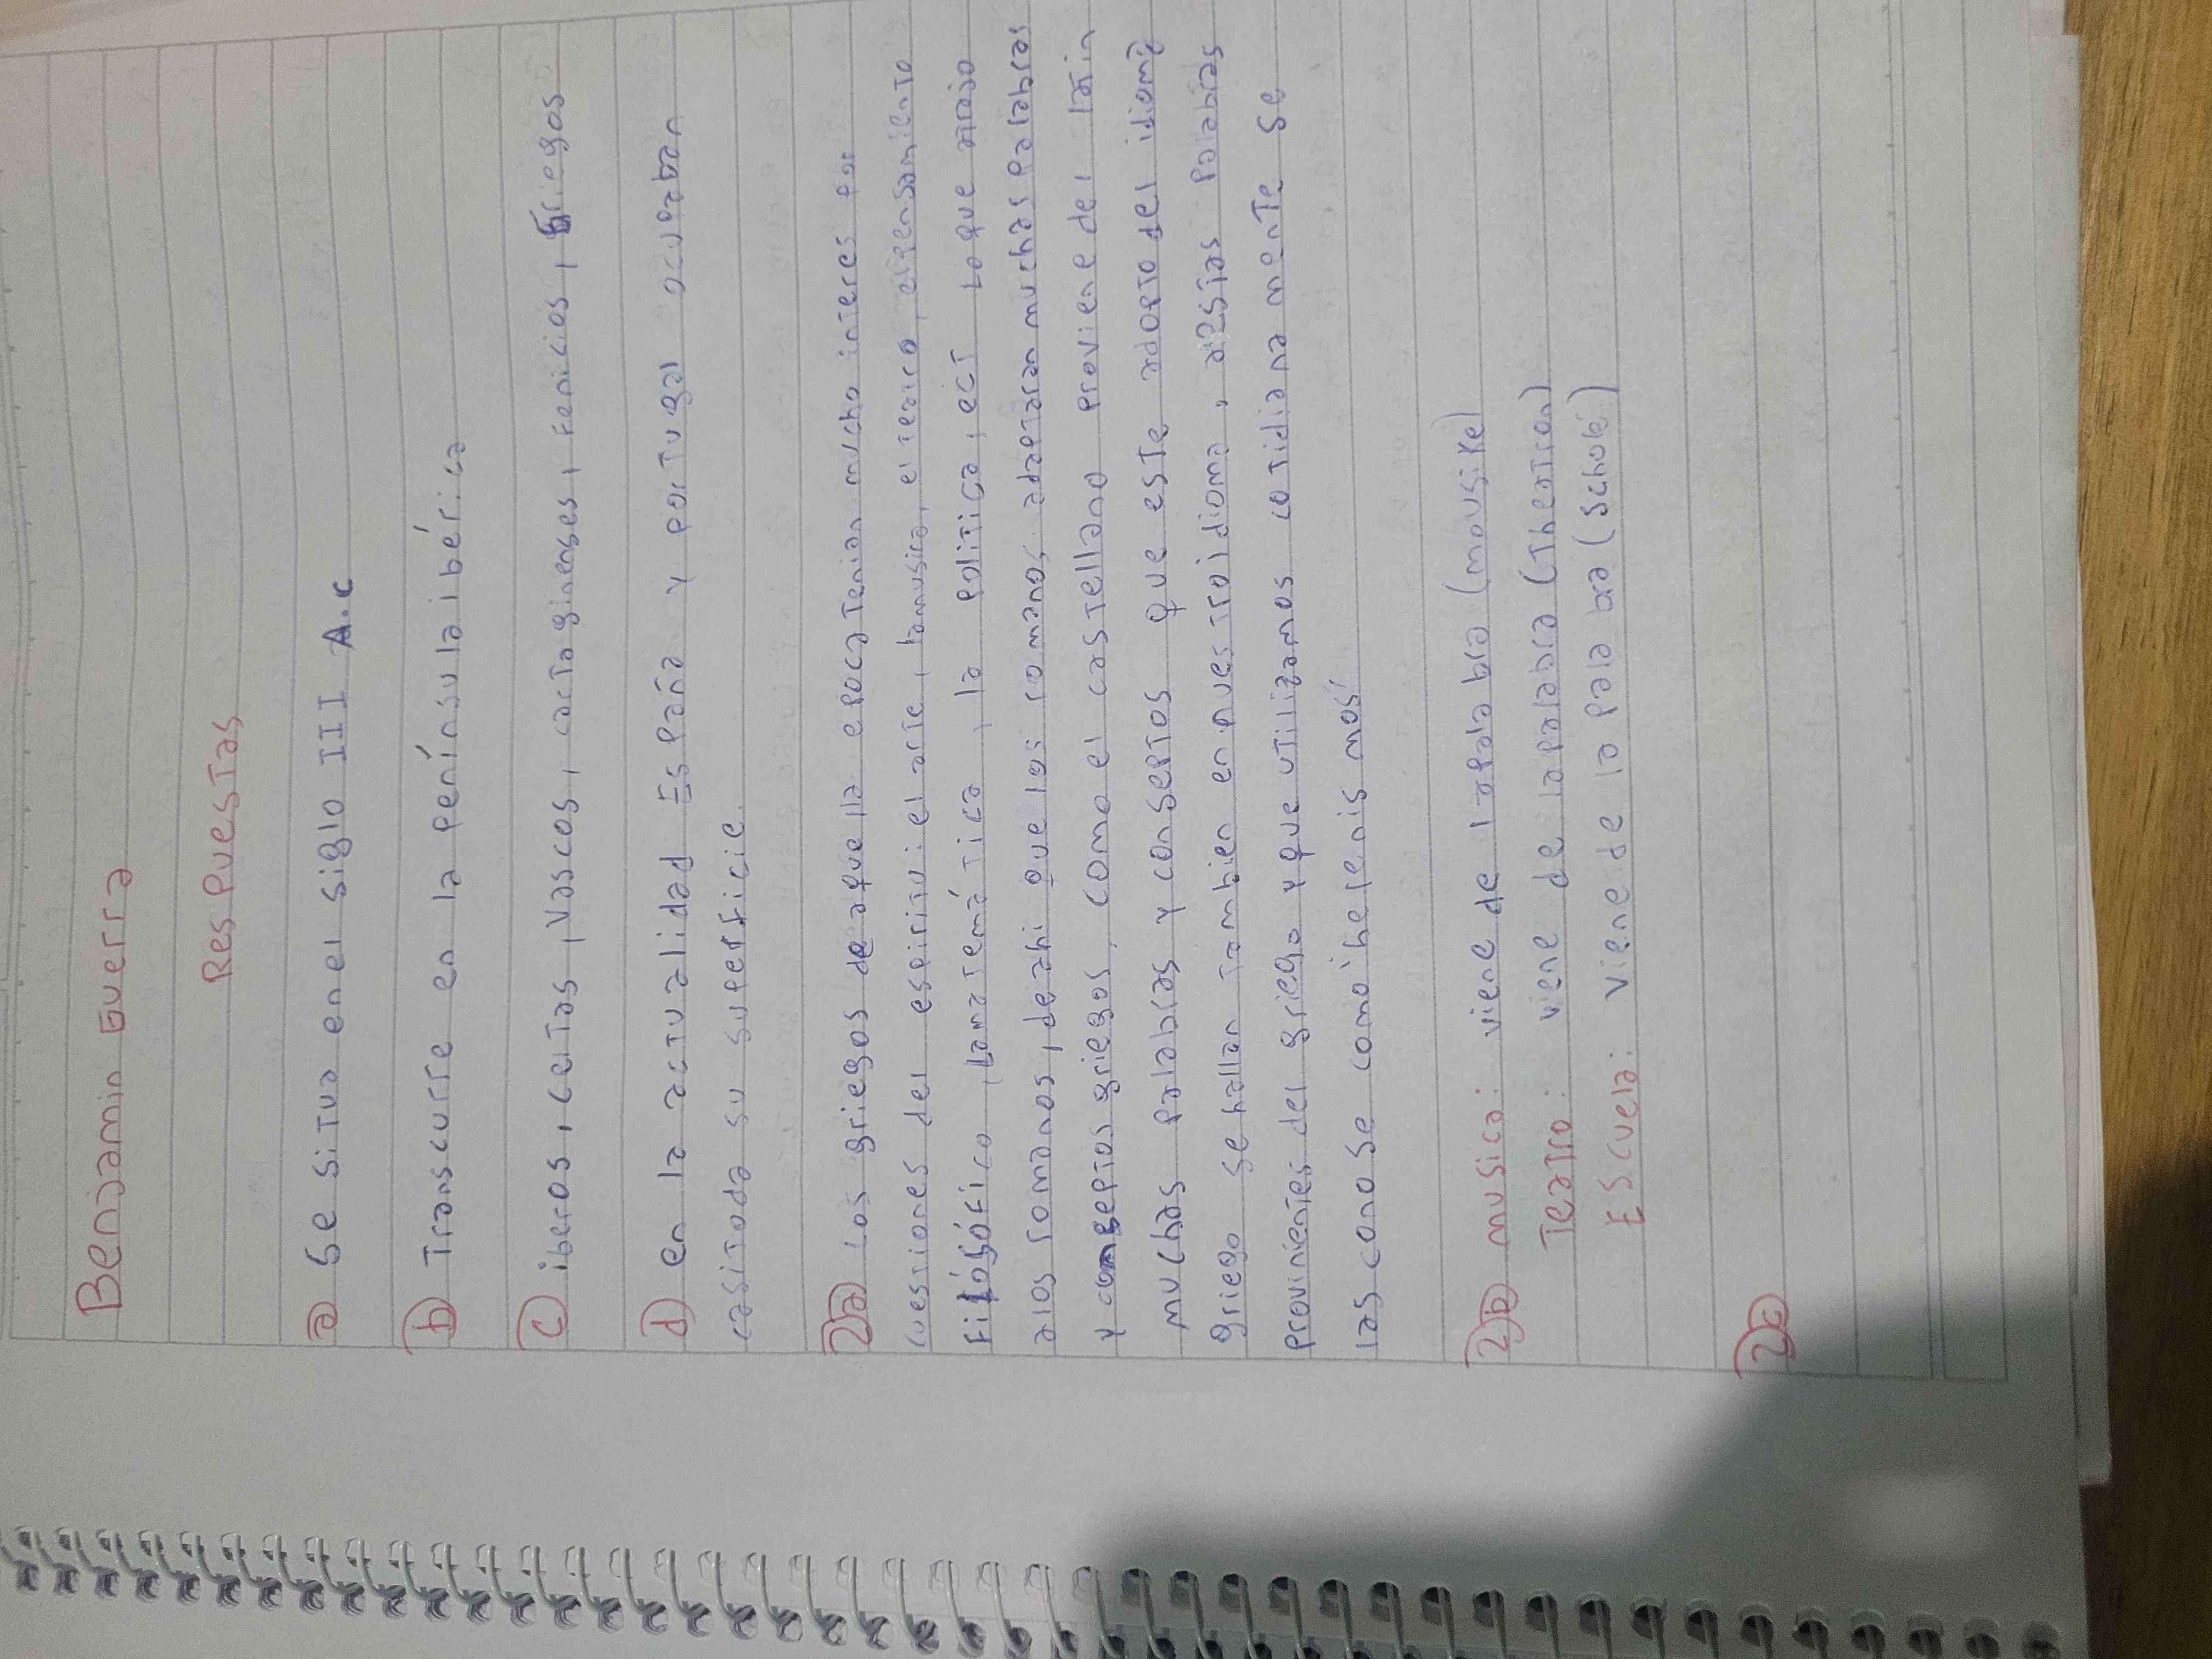 Benjamin Guerra
Respuestas
a) Se situa en el siglo III A.c
b) Transcurre en la península ibérica
c) iberos, celtas, Vascos, cartaginenses, Fenicios, Griegos
d) en la actualidad España y portugal ocupaban
casi toda su superficie.
2a) Los griegos de aquella epoca tenian mucho interes por
cuestiones del espiritu: el arte, la musica, el teatro, el pensamiento
Filósófico, La matemática, la politica, ect Lo que atrajo
a los romanos, de ahi que los romanos adaptaran muchas palabras
y conseptos griegos, como el castellano proviene del latin
muchas palabras y conseptos que este adopto del idioma
griego se hallan tambien en nuestro idioma, a estas Palabras
provinientes del griego y que utilizamos cotidiana mente se
las conose como "helenis mos"
2b) musica: viene de la palabra (mousike)
Teatro: viene de la palabra (Theatron)
Escuela: viene de la palabra (scholé)
2c)